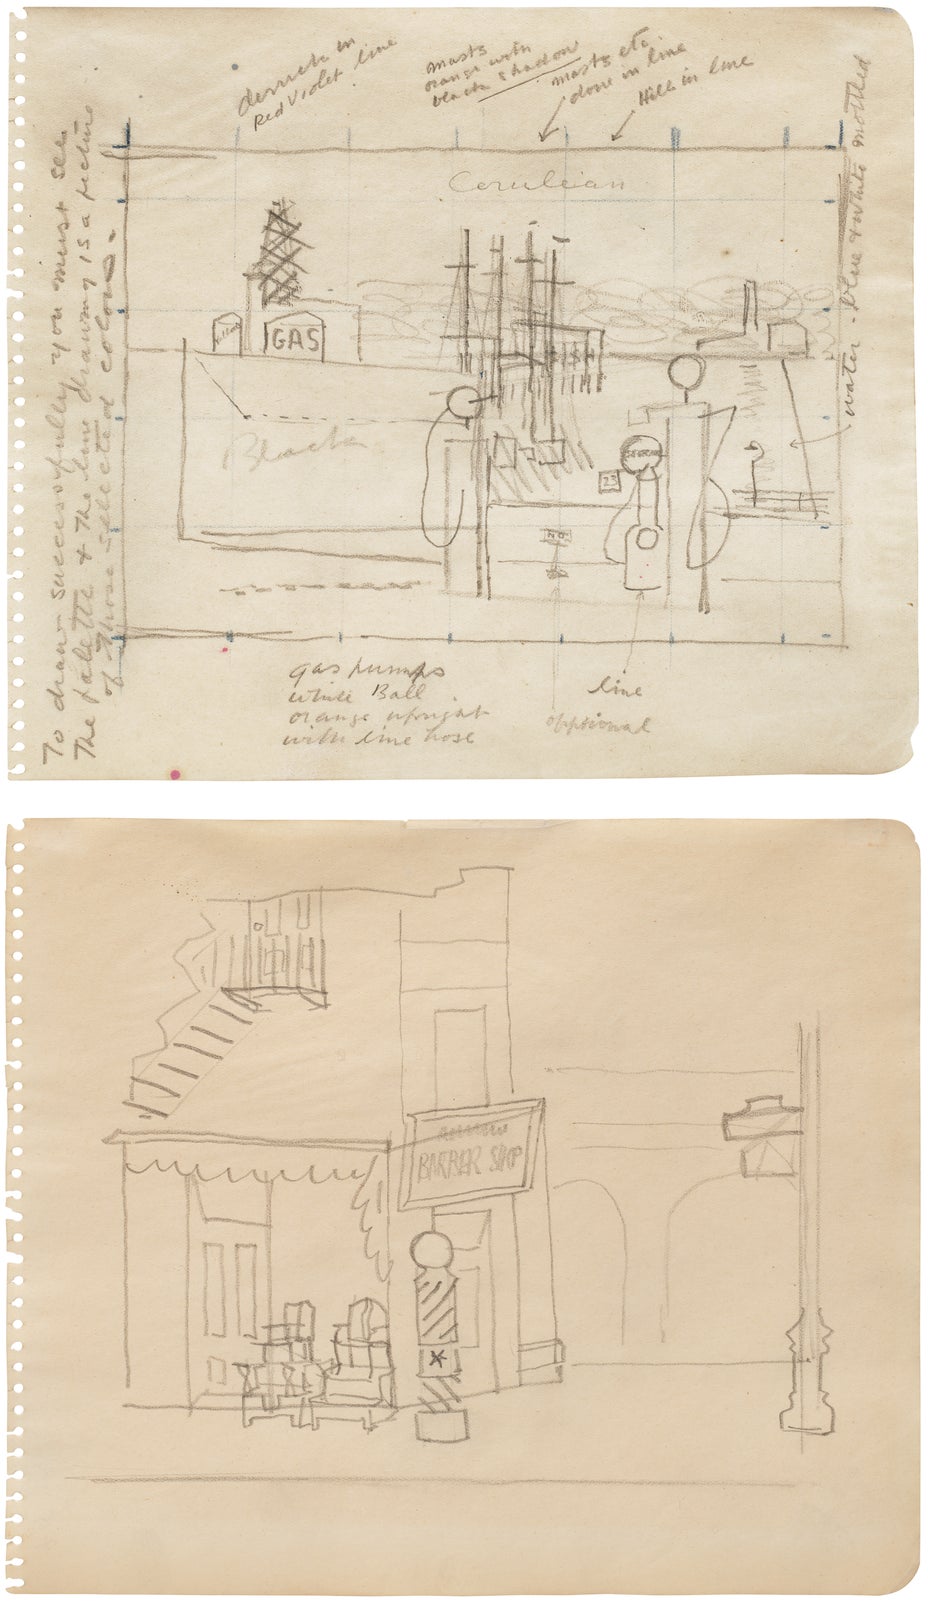 derrick in
Red Violet line
masts
orange with
black shadow
masts etc
done in line
Hills in line
To draw successfully you must see
the palette & the line drawing is a picture
of those selected colors.
water - blue & white mottled
Cerulean
GAS
Black
23
NO
gas pumps
white Ball
orange upright
with line hose
line
optional
BARBER SHOP